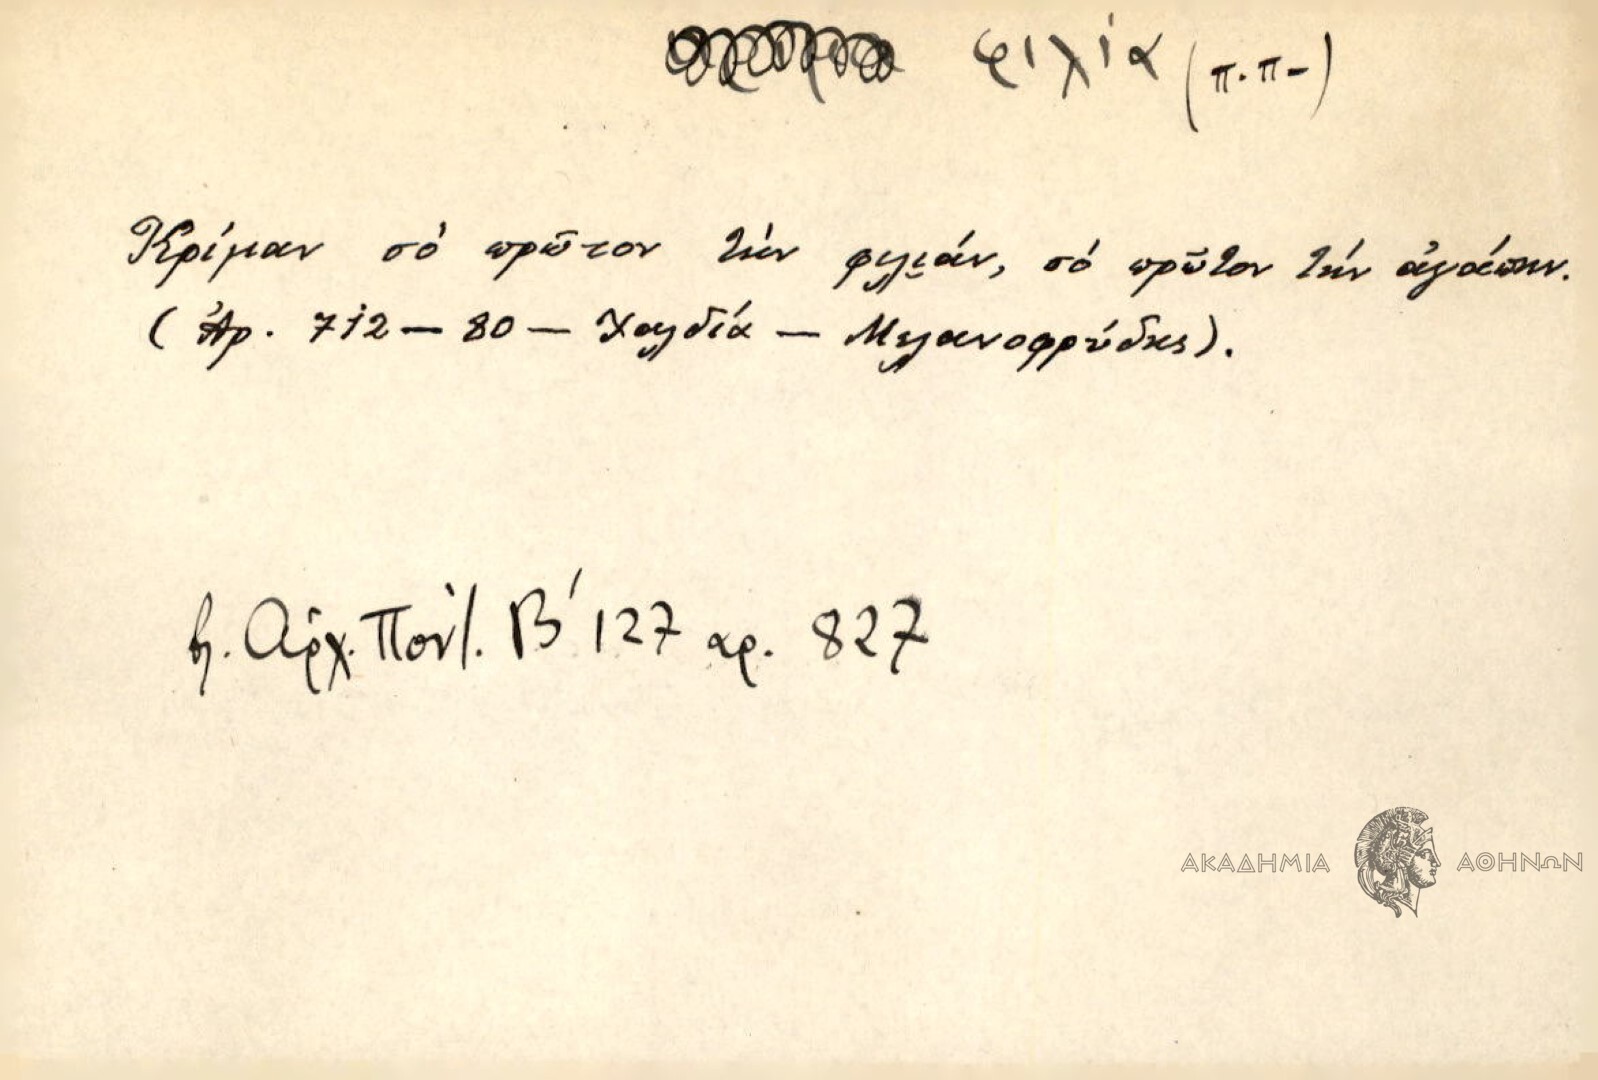 φιλία (π.π-)
Κρίμαν σό πρῶτον τήν φιλιάν, σό πρῶτον τήν ἀγάπην.
(Ἀρ. 712 — 80 — Χαλδία — Μελανοφρύδης).
βλ. Αρχ. Πόντ. Β' 127 αρ. 827
ΑΚΑΔΗΜΙΑ ΑΘΗΝΩΝ